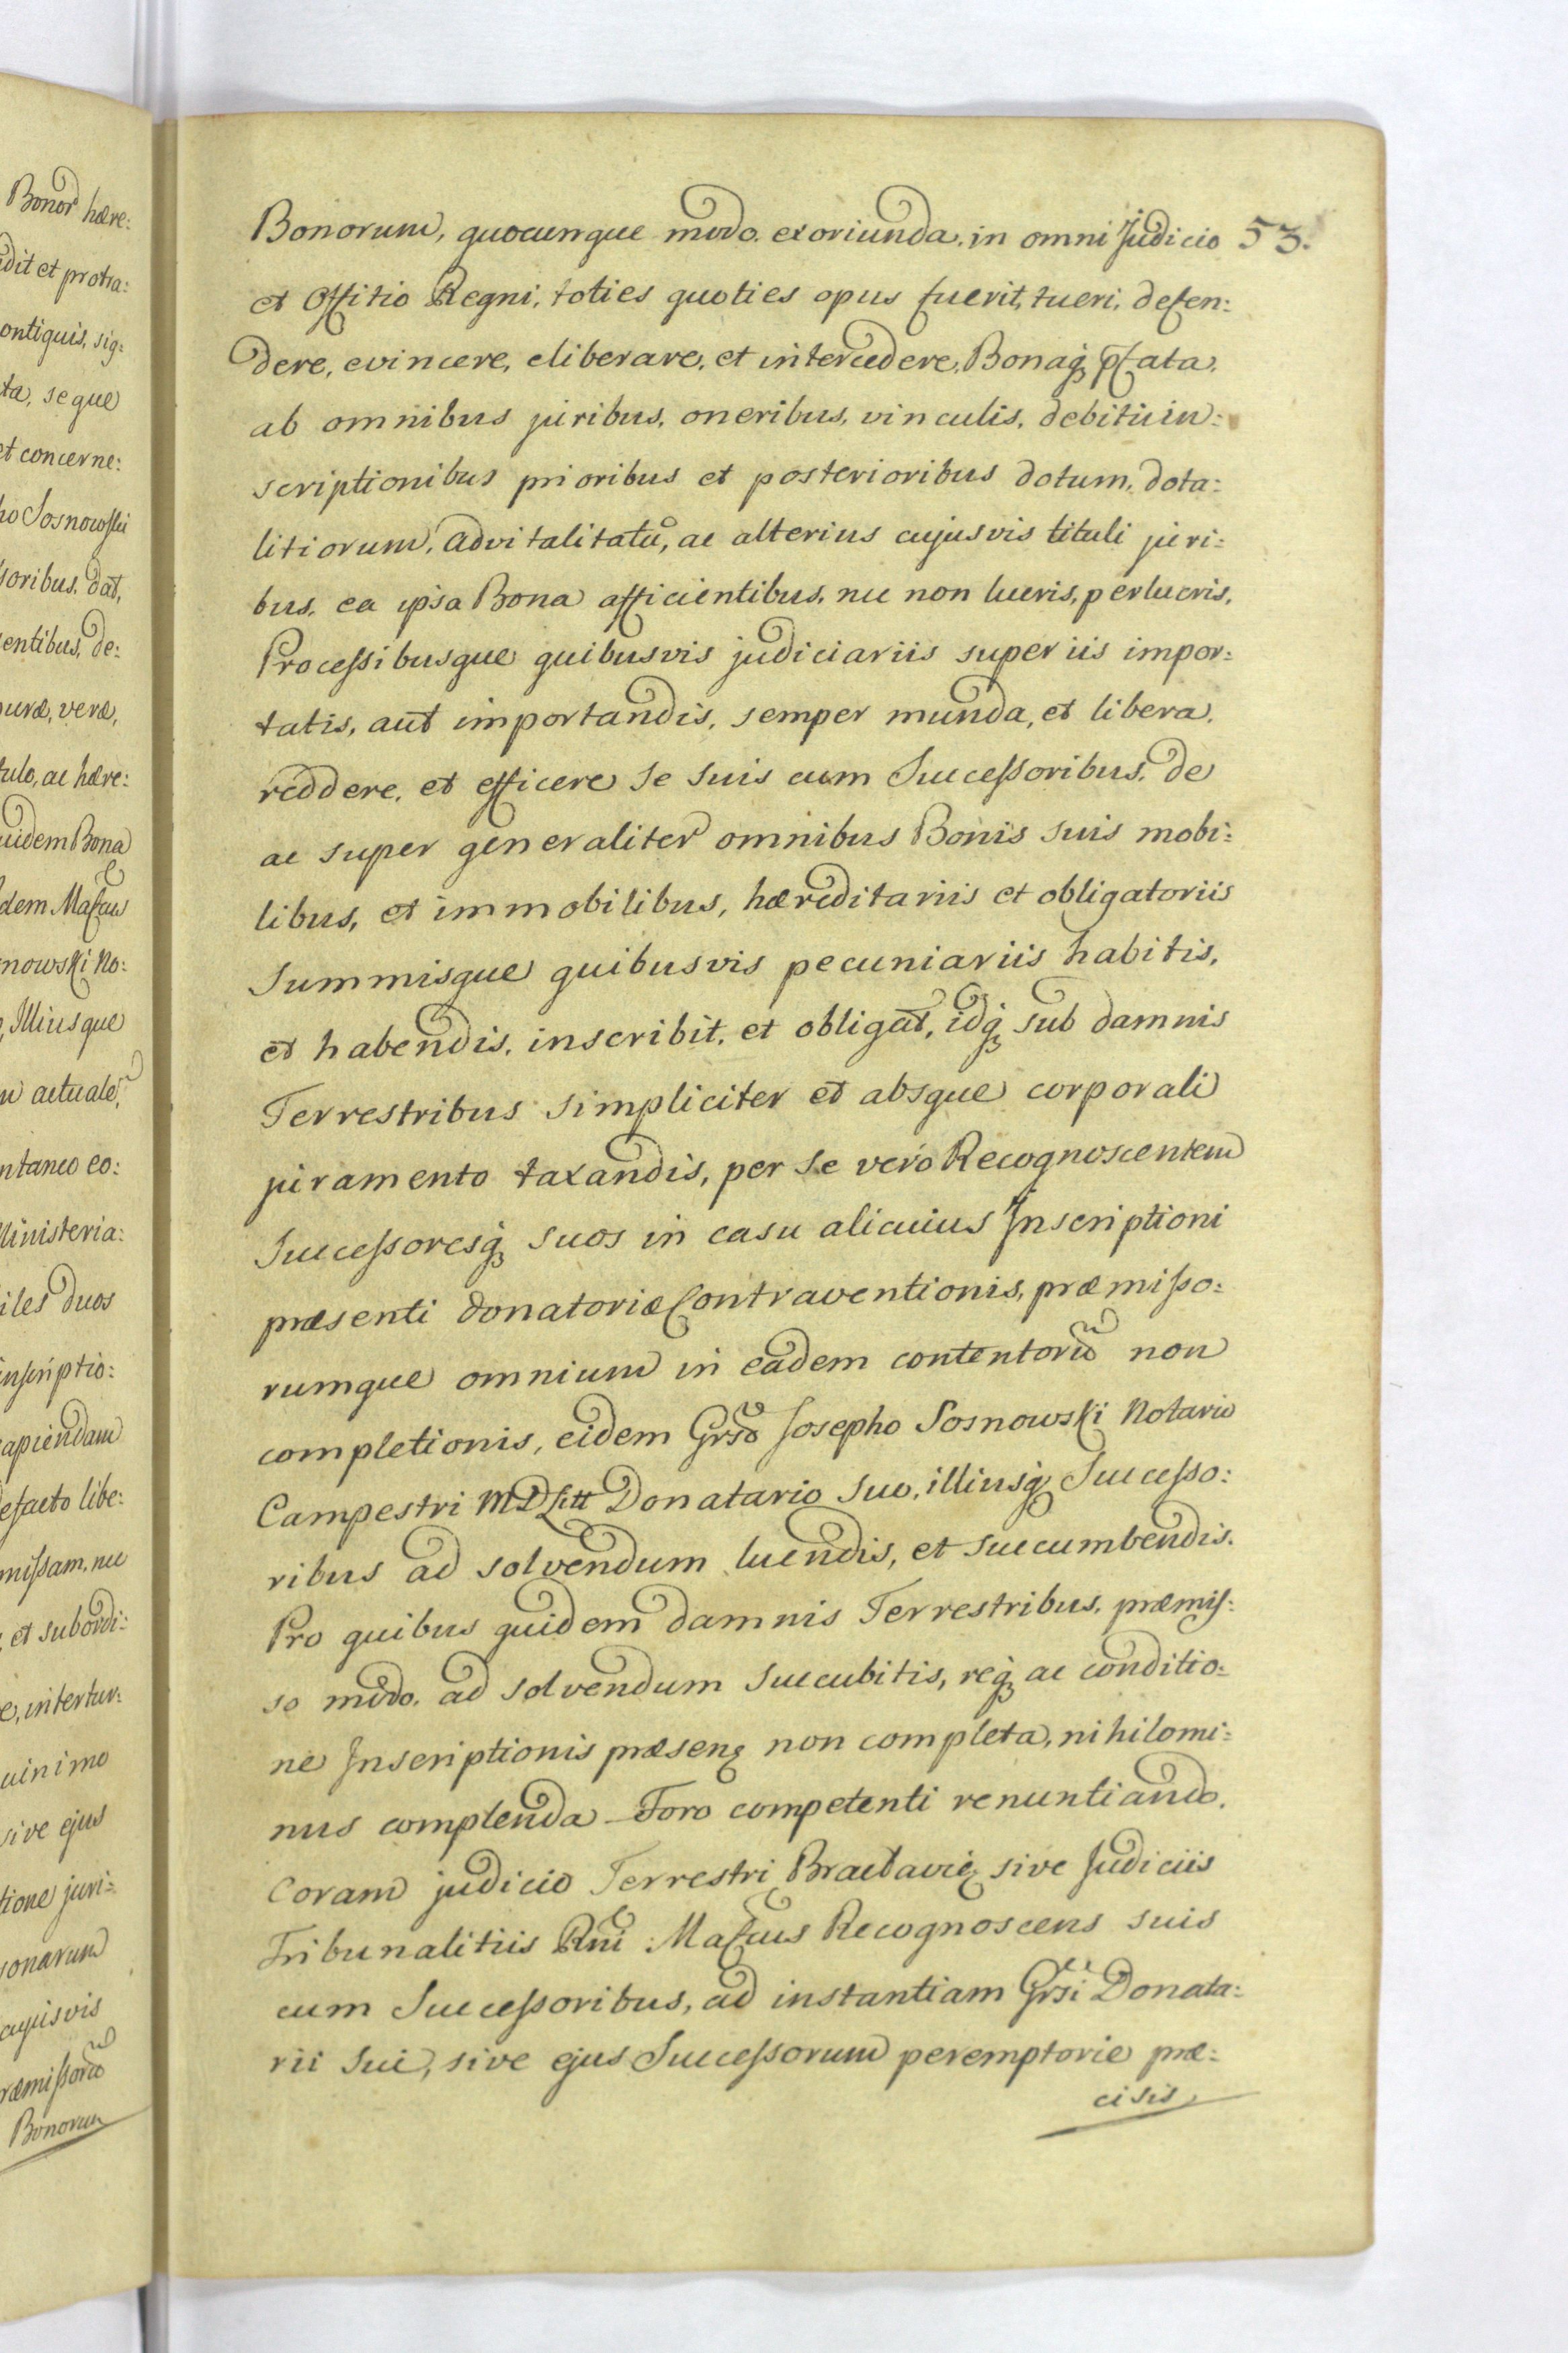 Bonor hære:
dit et protra:
ontiguis, sig:
ta, seque
et concerne:
ho Sosnowski
soribus, dat,
entibus, de:
puræ, veræ,
tulo, ac hære:
uidem Bona
dem Mafcus
nowski No:
Illiusque
m actuale,
ntaneo co:
Ministeria:
iles duos
inscriptio:
capiendam
defacto libe:
missam, nec
et subordi:
e, intertur:
uinimo
sive ejus
tione juri:
sonarum
cujusvis
ræmissoru
Bonorum
53.
Bonorum, quocunque modo exoriunda, in omni Judicio
et Offitio Regni, toties quoties opus fuerit, tueri, defen:
dere, evincere, eliberare, et intercedere, Bonaq pfata,
ab omnibus juribus, oneribus, vinculis, debitis in:
scriptionibus prioribus et posterioribus dotum, dota:
litiorum, advitalitatu, ac alterius cujusvis tituli juri:
bus, ea ipsa Bona afficientibus, nec non lucris, perlucris,
Processibusque quibusvis judiciariis super iis impor:
tatis, aut importandis, semper munda, et libera,
reddere, et efficere se suis cum Successoribus, de
ac super generaliter omnibus Bonis suis mobi:
libus, et immobilibus, hæreditariis et obligatoriis
Summisque quibusvis pecuniariis habitis,
et habendis, inscribit, et obligat, idq sub damnis
Terrestribus simpliciter et absque corporali
juramento taxandis, per se vero Recognoscentem
Successoresq suos in casu alicuius Inscriptioni
præsenti donatoriæ Contraventionis, præmisso:
rumque omnium in eadem contentoru non
completionis, eidem Grso Josepho Sosnowski Notario
Campestri MDLitt Donatario suo, illiusq Successo:
ribus ad solvendum luendis, et succumbendis.
Pro quibus quidem damnis Terrestribus, præmis:
so modo, ad solvendum succubitis, req ac conditio:
ne Inscriptionis præsen non completa, nihilomi:
nus complenda Foro competenti renuntiando,
Coram judicio Terrestri Braclavie sive Judiciis
Tribunalitiis Rni Mafcus Recognoscens suis
cum Successoribus, ad instantiam Grsi Donata:
rii sui, sive ejus Successorum peremptorie præ:
cisis